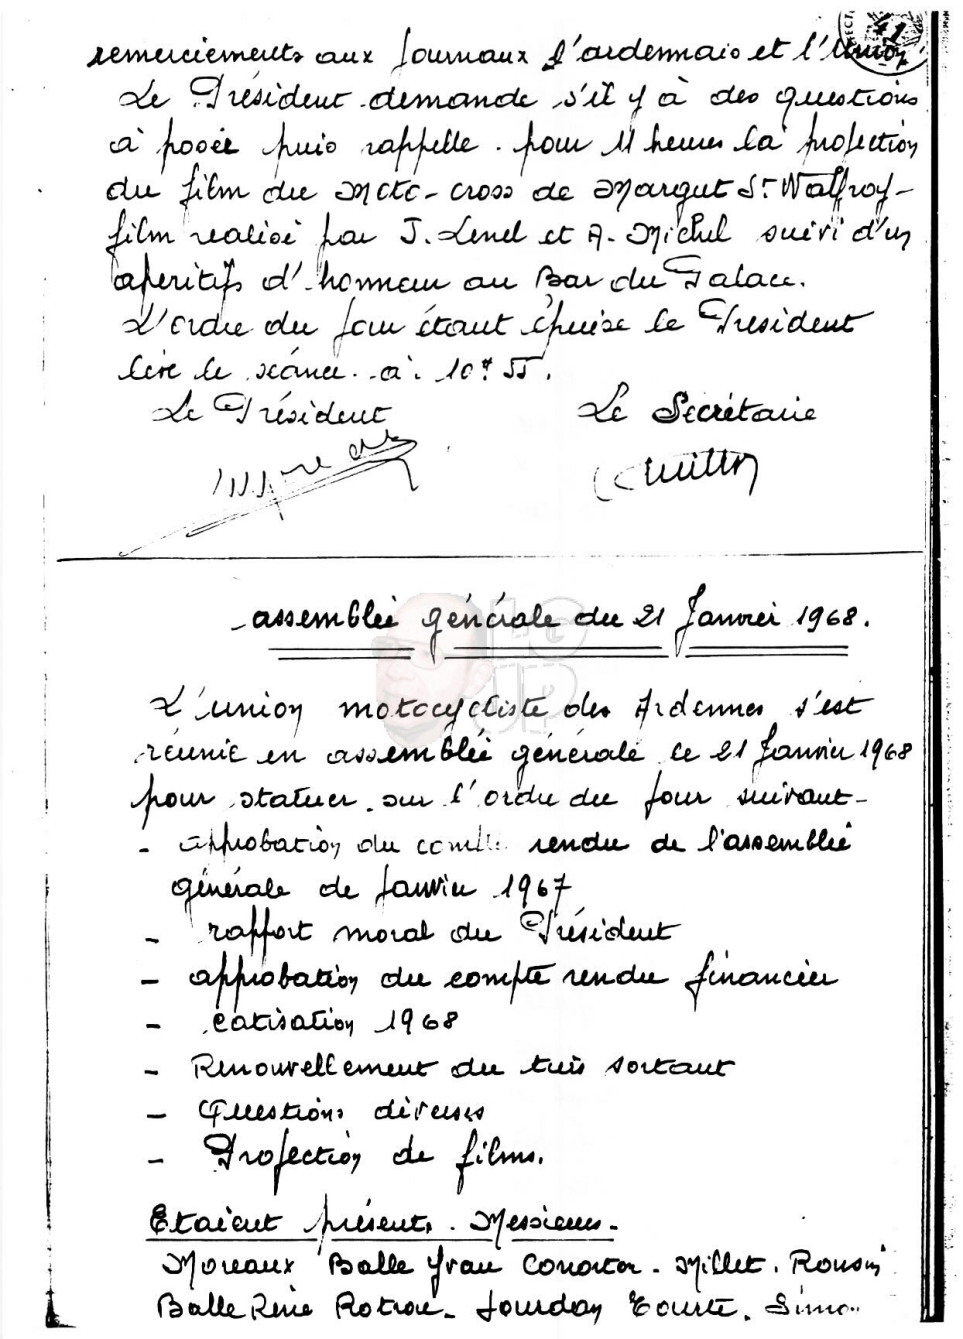 remerciements aux Journaux l'ardennais et l'Union
Le Président demande s'il y à des questions
à posée puis rappelle pour 11 heures la projection
du film du Moto-cross de Margut St Walfroy-
film realisé par J. Lenel et A. Michel suivi d'un
aperitifs d'honneur au Bar du Palace.
L'ordre du Jour étant épuisé le Président
lève le séance à 10H 55.
Le Président
Le Secrétaire
41
assemblée générale du 21 Janvier 1968.
L'union motocycliste des Ardennes s'est
réunie en assemblée générale le 21 Janvier 1968
pour statuer sur l'ordre du jour suivant-
- approbation du compte rendu de l'assemblée
générale de Janvier 1967
- rapport moral du Président
- approbation du compte rendu financier
- catisation 1968
- Renouvellement du tiers sortant
- Questions diverses
- Projection de films.
Etaient présents. Messieurs-
Moreaux Balle Yvan - Millet.
Balle René - Jourdan